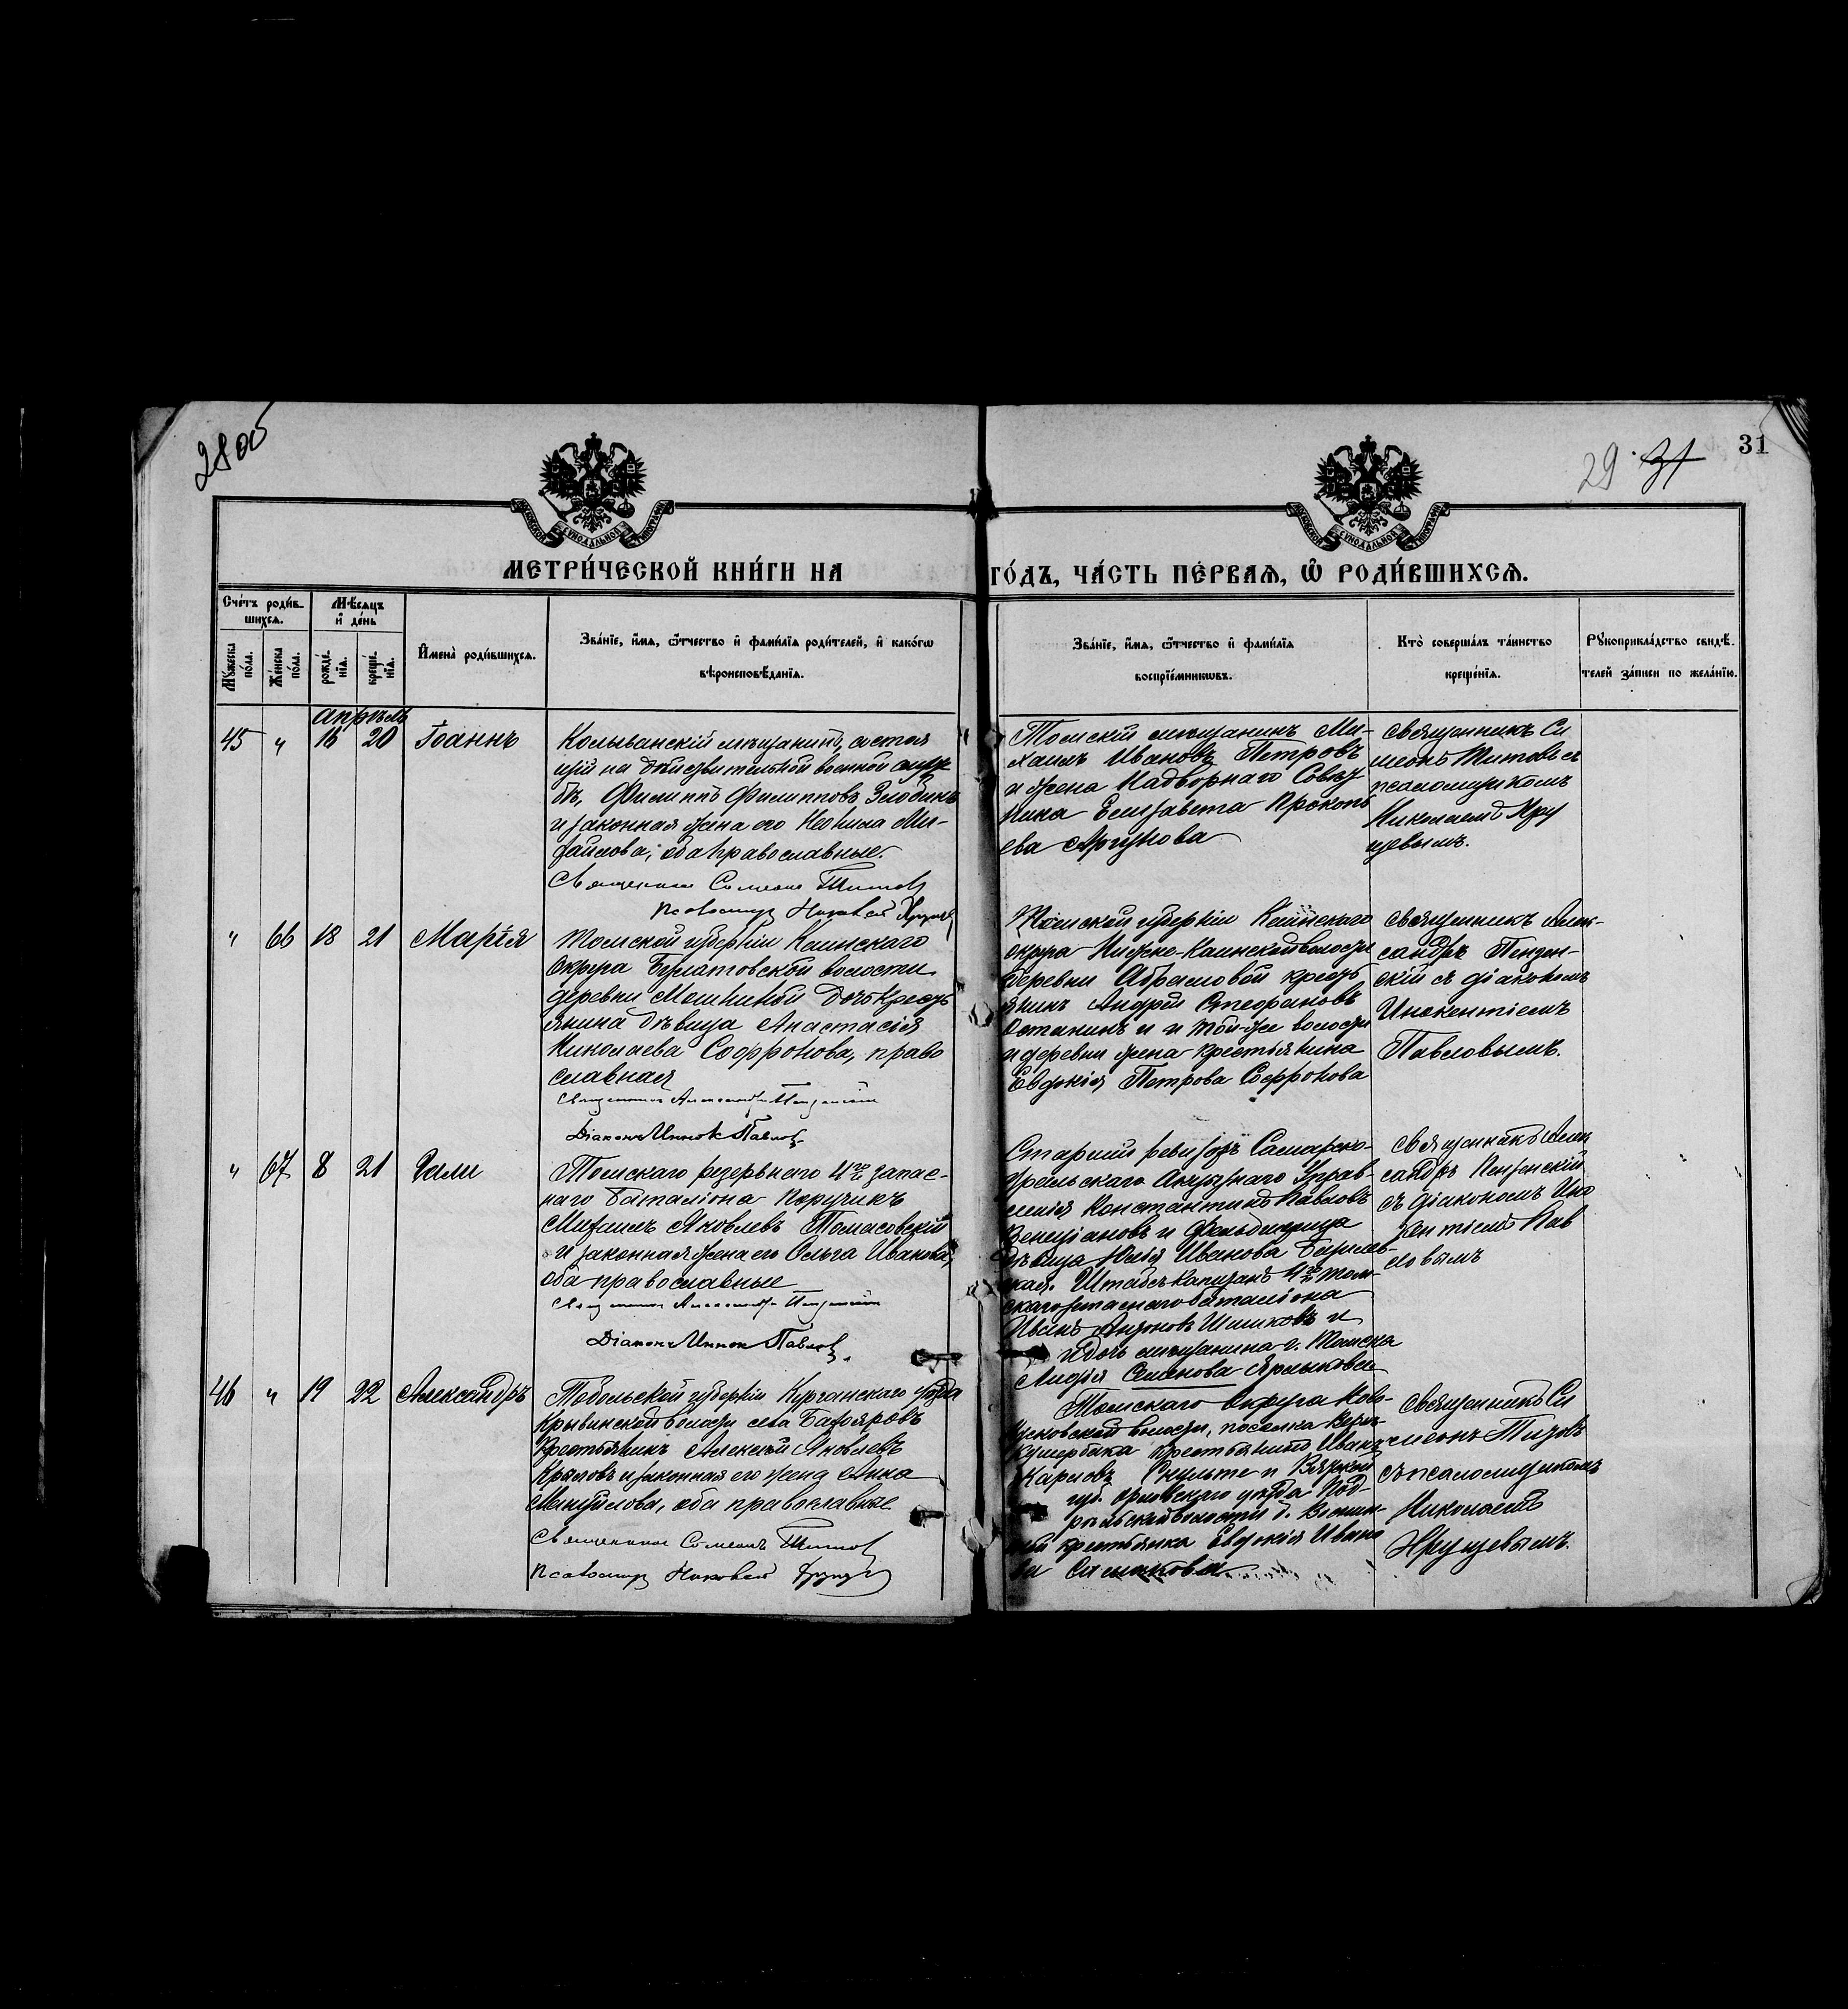 2806
31
29 31
МЕТРИ́ЧЕСКОЙ КНИ́ГИ НА
ГО́ДЪ, ЧА́СТЬ ПЕ́РВАѦ, Ѡ҆ РОДИ́ВШИХСѦ.
Сче́тъ роди́в-
шихсѧ.
Мѣ́сѧцъ
и҆ де́нь
Мꙋ́жеска
по́ла.
Же́нска
по́ла.
рожде́-
нїѧ.
креще́-
нїѧ.
И҆мена̀ роди́вшихсѧ.
Зва́нїе, и҆́мѧ, ѻ҆́тчество и҆ фами́лїѧ роди́телей, и҆ како́гѡ
вѣроисповѣ́данїѧ.
Зва́нїе, и҆́мѧ, ѻ҆́тчество и҆ фами́лїѧ
воспрїе́мникѡвъ.
Кто̀ соверша́лъ та́инство
креще́нїѧ.
Рꙋкоприкла́дство свидѣ́-
телей за́писи по жела́нїю.
апрѣль
45 " 16 20 Іоаннъ
Колыванскій мѣщанинъ, состоя
щій на дѣйствительной военной служ
бѣ, Филиппъ Филипповъ Злобинъ
и законная жена его Неонила Ми-
хайлова, оба православные.
Священникъ Симеонъ Титовъ
Псаломщ Николай Хрущев
Томскій мѣщанинъ Ми-
хаилъ Ивановъ Петровъ
и жена Надворнаго Совѣт
ника Елизавета Прокопь
ева
Священникъ Си
меонъ Титовъ съ
псаломщикомъ
Николаемъ Хру
щевымъ.
" 66 18 21 Марія
Томской губерніи Каинскаго
округа волости
деревни дочь кресть
янина дѣвица Анастасія
Николаева Софронова, право
славная
Священникъ Александръ
Діаконъ Иннок Павлов
Томской губерніи Каинскаго
округа Нижне-Каинской волости
деревни Абрамовой кресть
янинъ Андрей Стефановъ
Останинъ и той-же волости
и деревни жена крестьянина
Евдокія Петрова Софронова
Священникъ Алек-
сандръ
скій съ діакономъ
Инокентіемъ
Павловымъ.
" 67 8 21
Томскаго резервнаго 4го запас-
наго баталіона Поручикъ
Михаилъ Яковлевъ
и законная жена его Ольга Иванова,
оба православные
Священникъ Александръ
Діаконъ Иннок Павлов.
Старшій ревизоръ Самарско-
Уральскаго Акцизнаго Управ-
ленія Константинъ Павловъ
Венеціановъ и
дѣвица Юлія Иванова
Штабсъ-Капитанъ 4го Том-
скаго запаснаго баталіона
Иванъ Антоновъ Шишковъ и
дочь мѣщанина г. Томска
Лидія Семенова Ярлыкова
Священникъ Алек
сандръ
съ діакономъ Ино
кентіемъ Пав
ловымъ
46 " 19 22 Александръ
Тобольской губерніи Курганскаго уѣзда
волости села
крестьянинъ Алексѣй Яковлевъ
и законная его жена Анна
Мануйлова, оба православные
Священникъ Симеонъ Титовъ
Псаломщ Николай Хрущев
Томскаго округа Ново-
Кусковской волости, поселка
крестьянинъ Иванъ
Карповъ и Вятской
губ. Орловскаго уѣзда Под-
волости д.
крестьянка Евдокія Ивано
ва
Священникъ Си
меонъ Титовъ
съ псаломщикомъ
Николаемъ
Хрущевымъ.